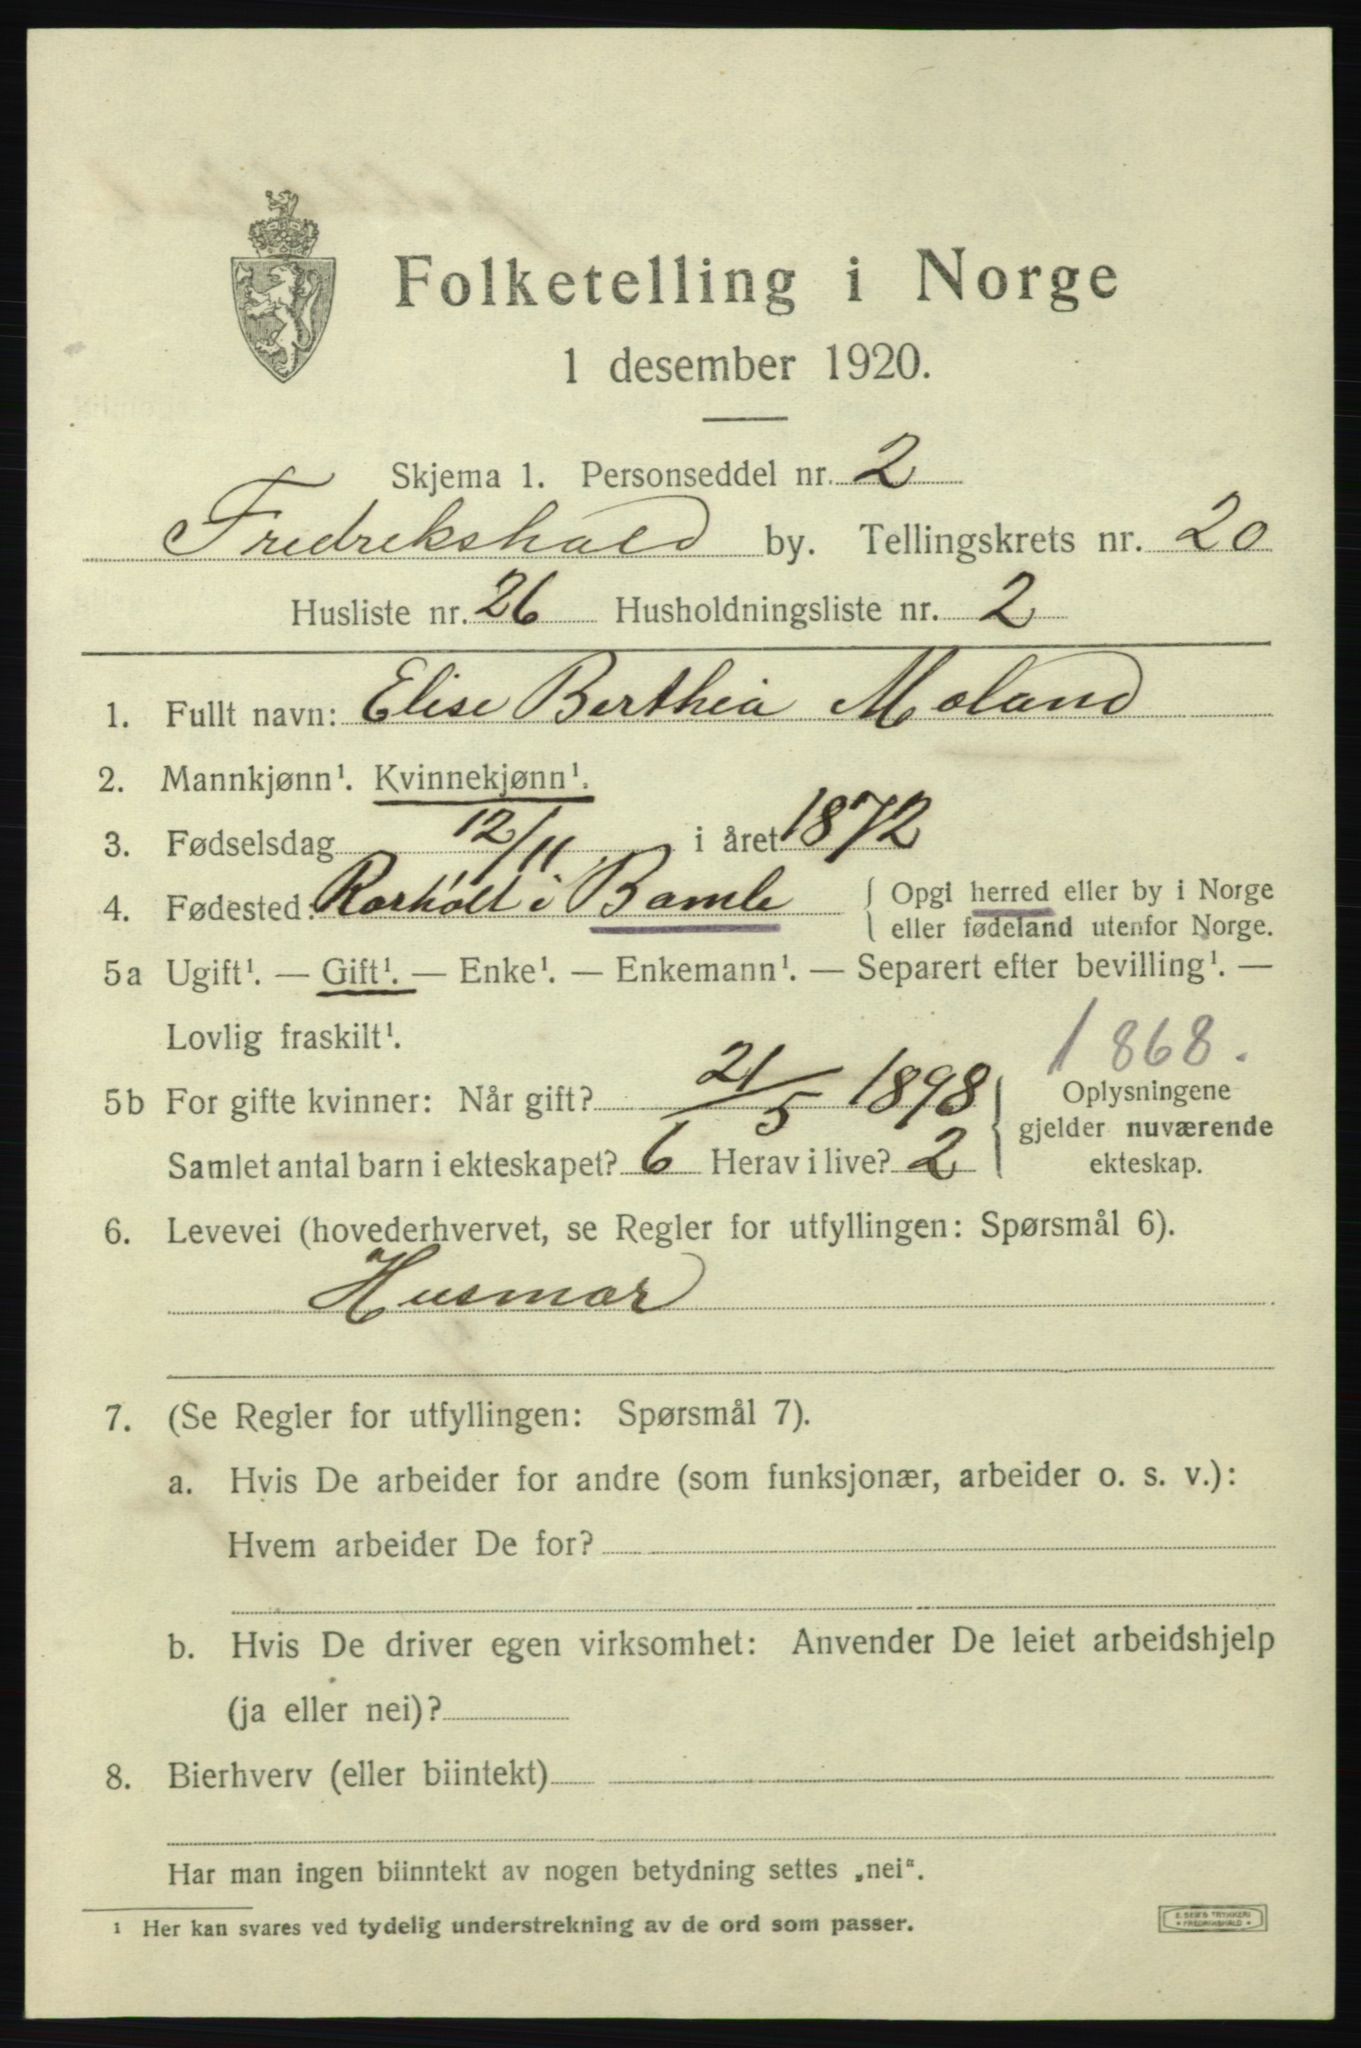 Folketelling i Norge
1 desember 1920.
Skjema 1. Personseddel nr. 2
Fredrikshald by. Tellingskrets nr. 20
Husliste nr. 26 Husholdningsliste nr. 2
1. Fullt navn: Elise Berthea Moland
2. Mannkjønn¹. Kvinnekjønn¹.
3. Fødselsdag 12/11 i året 1872
4. Fødested: Rorholt i Bamle { Opgi herred eller by i Norge
eller fødeland utenfor Norge.
5a Ugift¹. — Gift¹. — Enke¹. — Enkemann¹. — Separert efter bevilling¹. —
Lovlig fraskilt¹.
1868.
5b For gifte kvinner: Når gift? 21/5 1898 { Oplysningene
gjelder nuværende
Samlet antal barn i ekteskapet? 6 Herav i live? 2 ekteskap.
6. Levevei (hovederhvervet, se Regler for utfyllingen: Spørsmål 6).
Husmor
7. (Se Regler for utfyllingen: Spørsmål 7).
a. Hvis De arbeider for andre (som funksjonær, arbeider o. s. v.):
Hvem arbeider De for?
b. Hvis De driver egen virksomhet: Anvender De leiet arbeidshjelp
(ja eller nei)?
8. Bierhverv (eller biintekt)
Har man ingen biinntekt av nogen betydning settes „nei“.
¹ Her kan svares ved tydelig understrekning av de ord som passer.
E. SEM'S TRYKKERI
• FREDRIKSHALD •